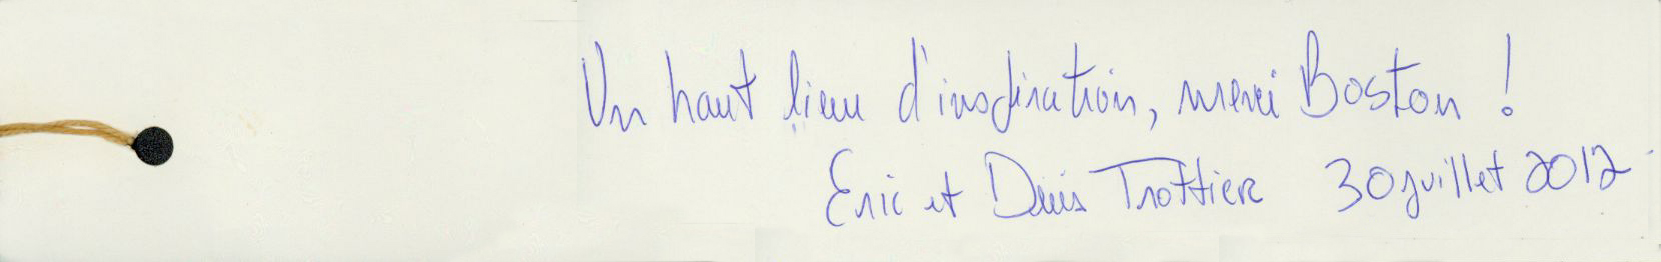 Un haut lieu d'inspiration, merci Boston !
Eric et Denis Trottier 30 juillet 2012